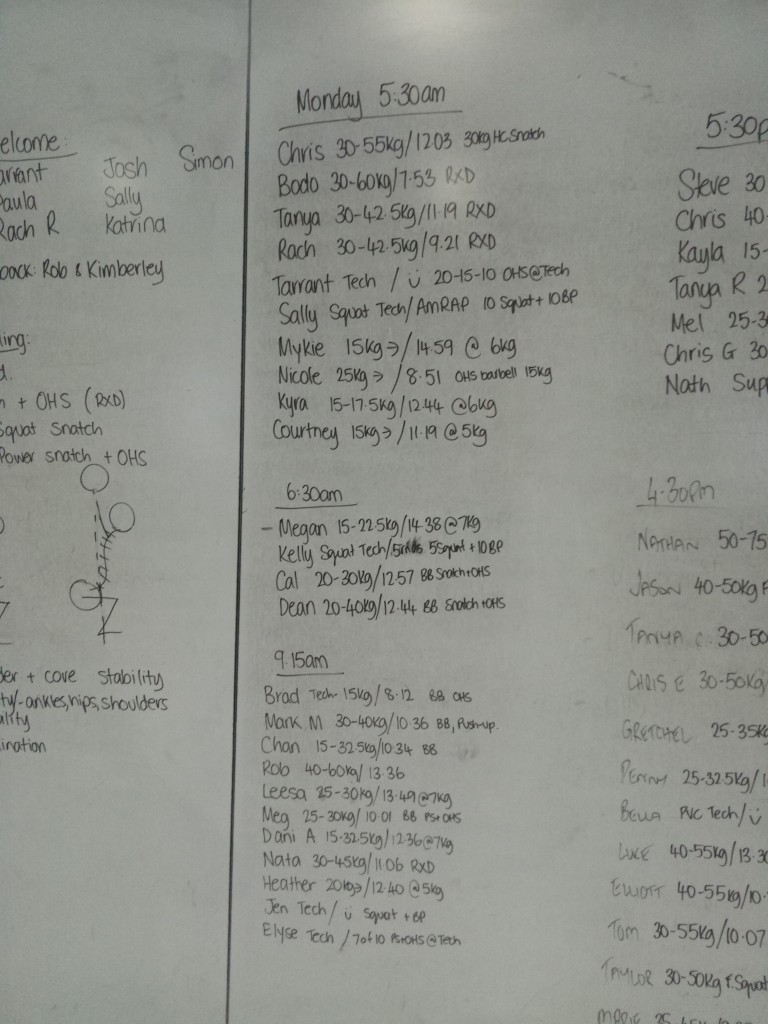 elcome:
arrant Josh Simon
aula Sally
Rach R Katrina
back: Rob & Kimberley
ling:
d.
n + OHS (RXD)
Squat Snatch
Power snatch + OHS
der + core stability
ty-ankles, hips, shoulders
ality
ination
Monday 5:30am
Chris 30-55kg/1203 30kg HC Snatch
Bodo 30-60kg/7.53 RXD
Tanya 30-42.5kg/11.19 RXD
Rach 30-42.5kg/9.21 RXD
Tarrant Tech / ü 20-15-10 OHS@Tech
Sally Squat Tech/AMRAP 10 Squat + 10BP
Mykie 15kg→/14.59 @ 6kg
Nicole 25kg→/8.51 OHS barbell 15kg
Kyra 15-17.5kg/12.44 @6kg
Courtney 15kg→/11.19 @5kg
6:30am
- Megan 15-22.5kg/14.38@7kg
Kelly Squat Tech/ 5 Squat + 10BP
Cal 20-30kg/12.57 BB Snatch+OHS
Dean 20-40kg/12.44 BB Snatch+OHS
9.15am
Brad Tech-15kg/8.12 BB OHS
Mark M 30-40kg/10.36 BB, Push-up.
Chan 15-32.5kg/10.34 BB
Rob 40-60kg/13.36
Leesa 25-30kg/13.49@7kg
Meg 25-30kg/10.01 BB PS+OHS
Dani A 15-32.5kg/12.36@7kg
Nata 30-45kg/11.06 RXD
Heather 20kg→/12.40 @5kg
Jen Tech/ ü Squat + BP
Elyse Tech /7of10 PS+OHS@Tech
5:30p
Steve 30
Chris 40-
Kayla 15-
Tanya R 2
Mel 25-3
Chris G 30
Nath Sup
4.30pm
NATHAN 50-75
JASON 40-50kg F
TANYA C. 30-50
CHRIS E 30-50kg/
GRETCHEL 25-35kg
PENNY 25-32.5kg/1
BELLA PVC Tech/ü
LUKE 40-55kg/13.30
ELLIOTT 40-55kg/10.
TOM 30-55kg/10.07
TAYLOR 30-50kg F.Squat
MARIE 25